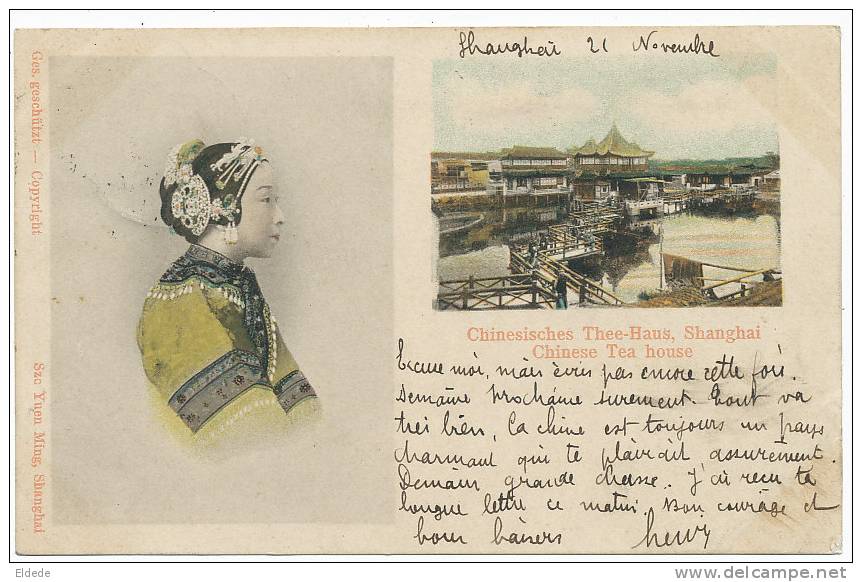 Shanghaï 21 Novembre
Ges. geschützt — Copyright
Sze Yuen Ming, Shanghai
Chinesisches Thee-Haus, Shanghai
Chinese Tea house
Excuse moi, mais écris pas encore cette fois.
Semaine prochaine surement. Tout va
très bien, la chine est toujours un pays
charmant qui te plairait assurément.
Demain grande chasse.. J'ai reçu ta
longue lettre ce matin. Bon courage et
bons baisers
Henry
Eldede
http://www.delcampe.net